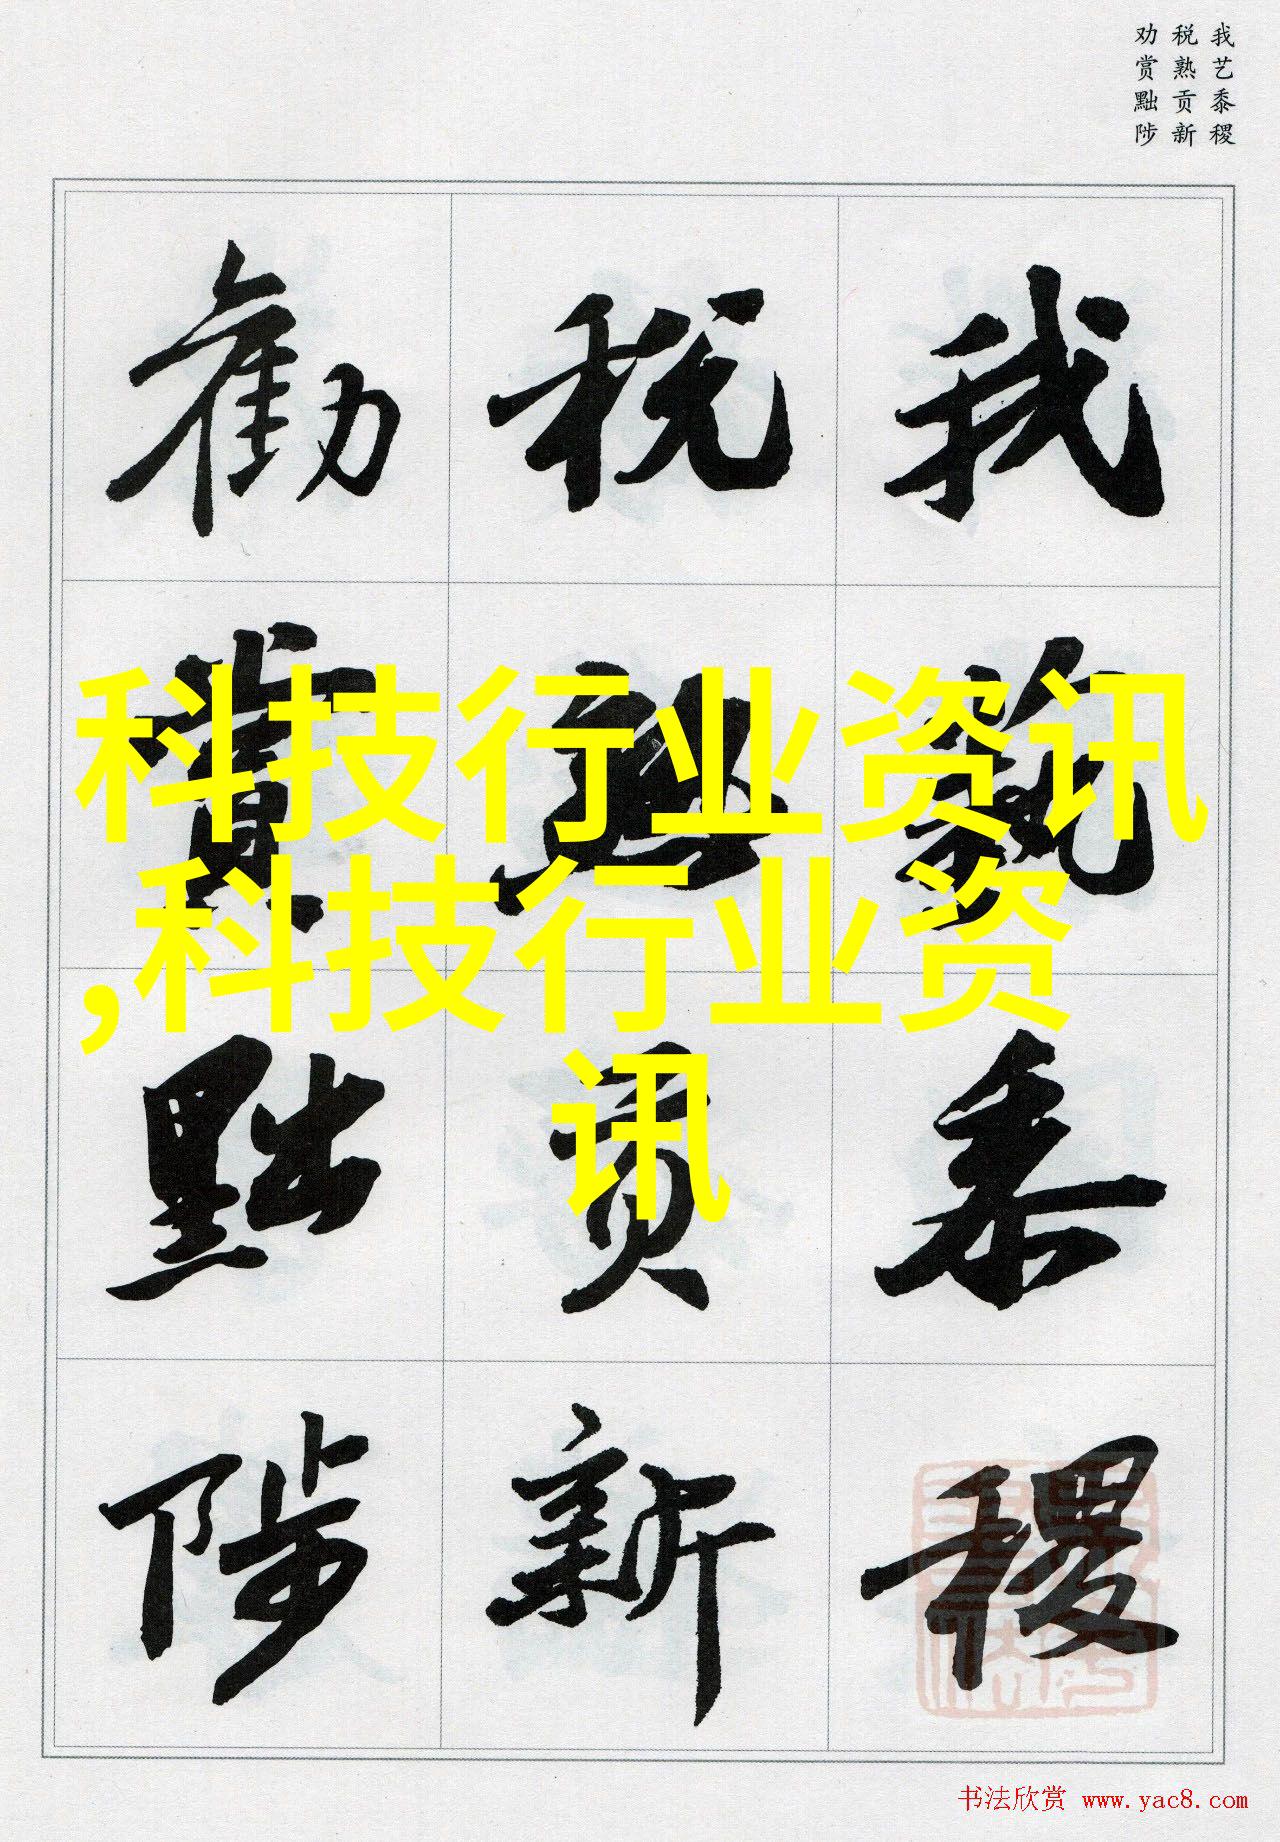 我艺黍稷
税熟贡新
劝赏黜陟
我艺黍稷
税熟贡新
勸賞黜陟
科技行业资讯
,科技行业资
讯
书法欣赏 www.yac8.com